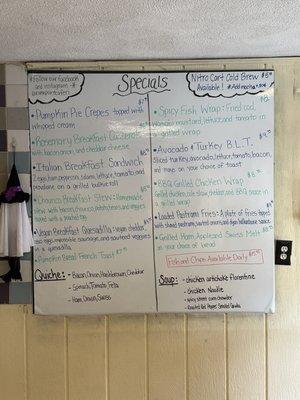 Follow our facebook
and instagram
Specials
Nitro Cart Cold Brew $5
Available! * Add mocha
Pumpkin Pie Crepes topped with
whipped cream
Rosemary Breakfast
with bacon, onion, and cheddar
Italian Breakfast Sandwich
Eggs, ham, pepperoni, salami, lettuce, tomato, and
provolone on a grilled
Breakfast Stew - Homemade
stew with bacon, chourico, potato, onions, and eggs
toast with a
Breakfast Quesadilla - vegan cheddar,
egg, vegan sausage, and sauteed veggies
in a quesadilla
Pumpkin Bread French Toast
Quiche:
- Bacon, Onion, Cheddar
- Spinach, Tomato, Feta
- Ham, Onion, Swiss
Spicy Fish Wrap: Fried cod,
mustard, lettuce and tomato in
a grilled wrap
Avocado & Turkey B.L.T.
Sliced turkey, avocado, lettuce, tomato, bacon,
and mayo on your choice of toast
BBQ Grilled Chicken Wrap
Grilled chicken, cole slaw, cheddar, and BBQ sauce in
a grilled wrap
Loaded Pastrami Fries: A plate of fries topped
with
Grilled Ham, Apple and Swiss Melt
on your choice of bread
Fish and Chips Available Daily
Soup:
- chicken artichoke florentine
- Chicken Noodle
- spicy street corn chowder
- Roasted Red Pepper Smoked Gouda